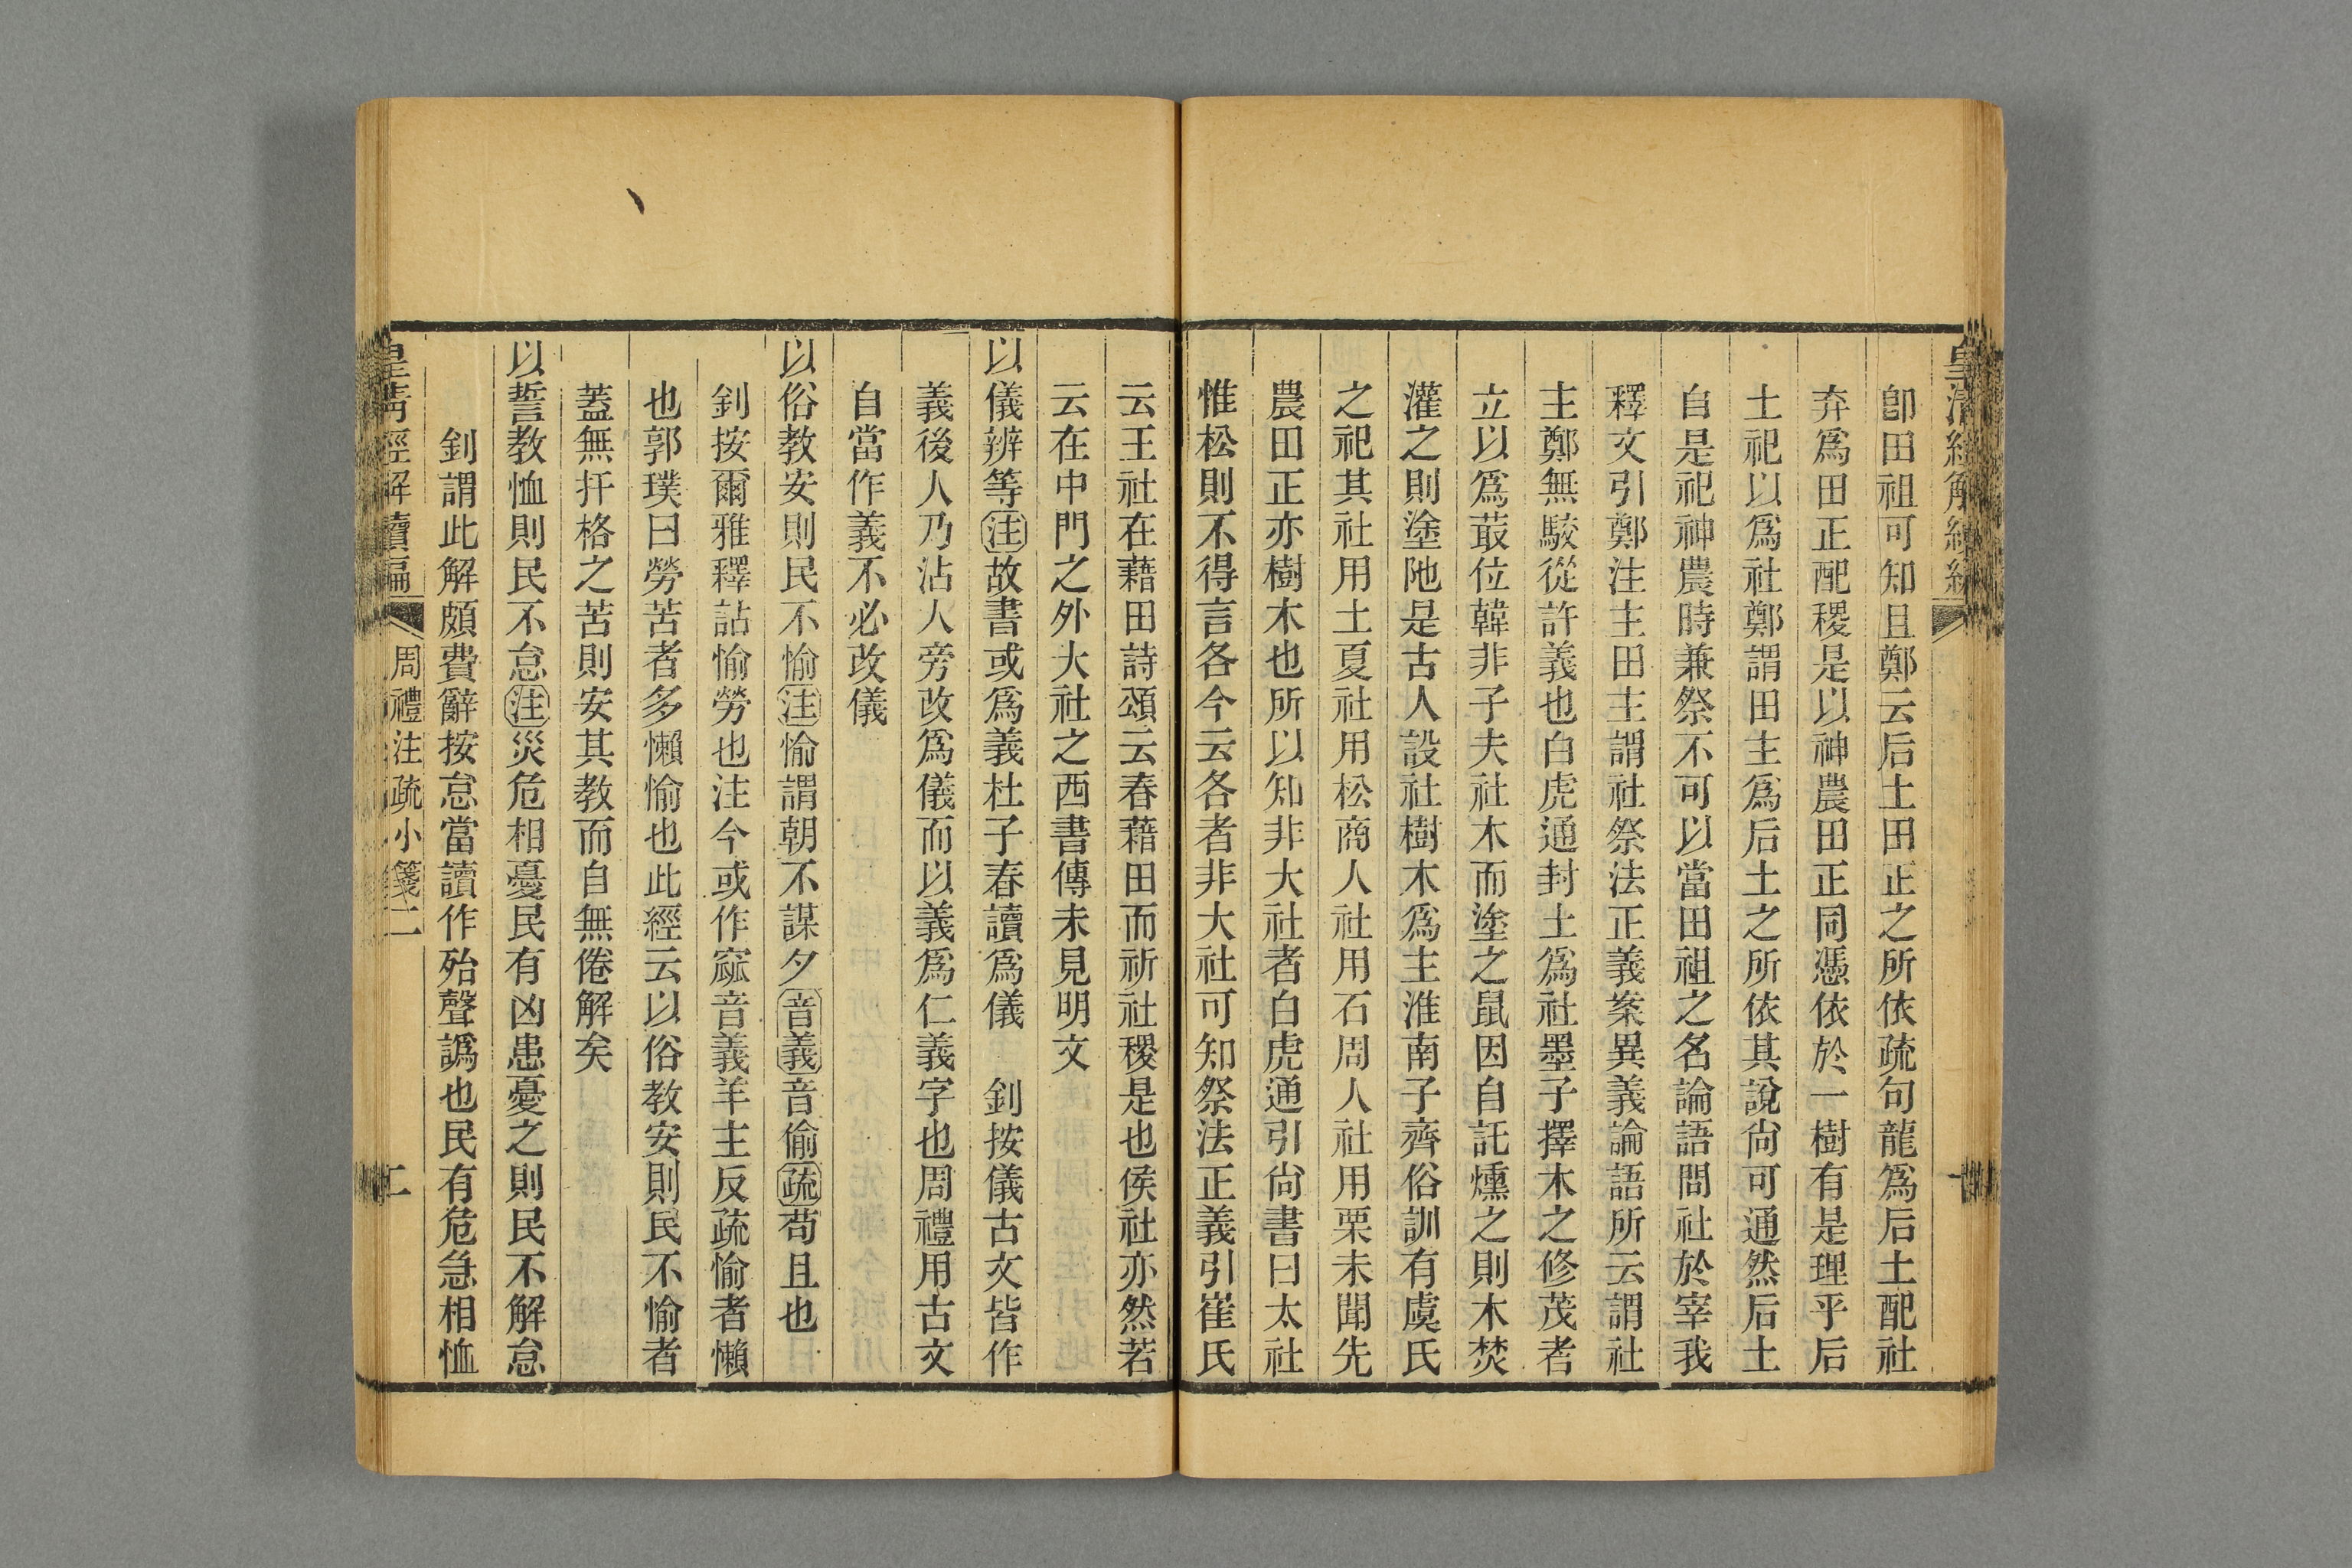 皇清經解續編
卽田祖可知且鄭云后土田正之所依疏句龍爲后土配社
弃爲田正配稷是以神農田正同憑依於一樹有是理乎后
土祀以爲社鄭謂田主爲后土之所依其說尙可通然后土
自是祀神農時兼祭不可以當田祖之名論語問社於宰我
釋文引鄭注主田主謂社祭法正義案異義論語所云謂社
主鄭無駮從許義也白虎通封土爲社墨子擇木之修茂者
立以爲菆位韓非子夫社木而塗之鼠因自託燻之則木焚
灌之則塗阤是古人設社樹木爲主淮南子齊俗訓有虞氏
之祀其社用土夏社用松商人社用石周人社用栗未聞先
農田正亦樹木也所以知非大社者白虎通引尙書曰太社
惟松則不得言各今云各者非大社可知祭法正義引崔氏
云王社在藉田詩頌云春藉田而祈社稷是也侯社亦然若
云在中門之外大社之西書傳未見明文
以儀辨等注故書或爲義杜子春讀爲儀　釗按儀古文皆作
義後人乃沾人旁改爲儀而以義爲仁義字也周禮用古文
自當作義不必改儀
以俗教安則民不愉注愉謂朝不謀夕音義音偷疏苟且也
釗按爾雅釋詁愉勞也注今或作窳音義羊主反疏愉者懶
也郭璞曰勞苦者多懶愉也此經云以俗教安則民不愉者
蓋無扞格之苦則安其教而自無倦解矣
以誓教恤則民不怠注災危相憂民有凶患憂之則民不解怠
釗謂此解頗費辭按怠當讀作殆聲譌也民有危急相恤
皇清經解續編　周禮注疏小箋二　二